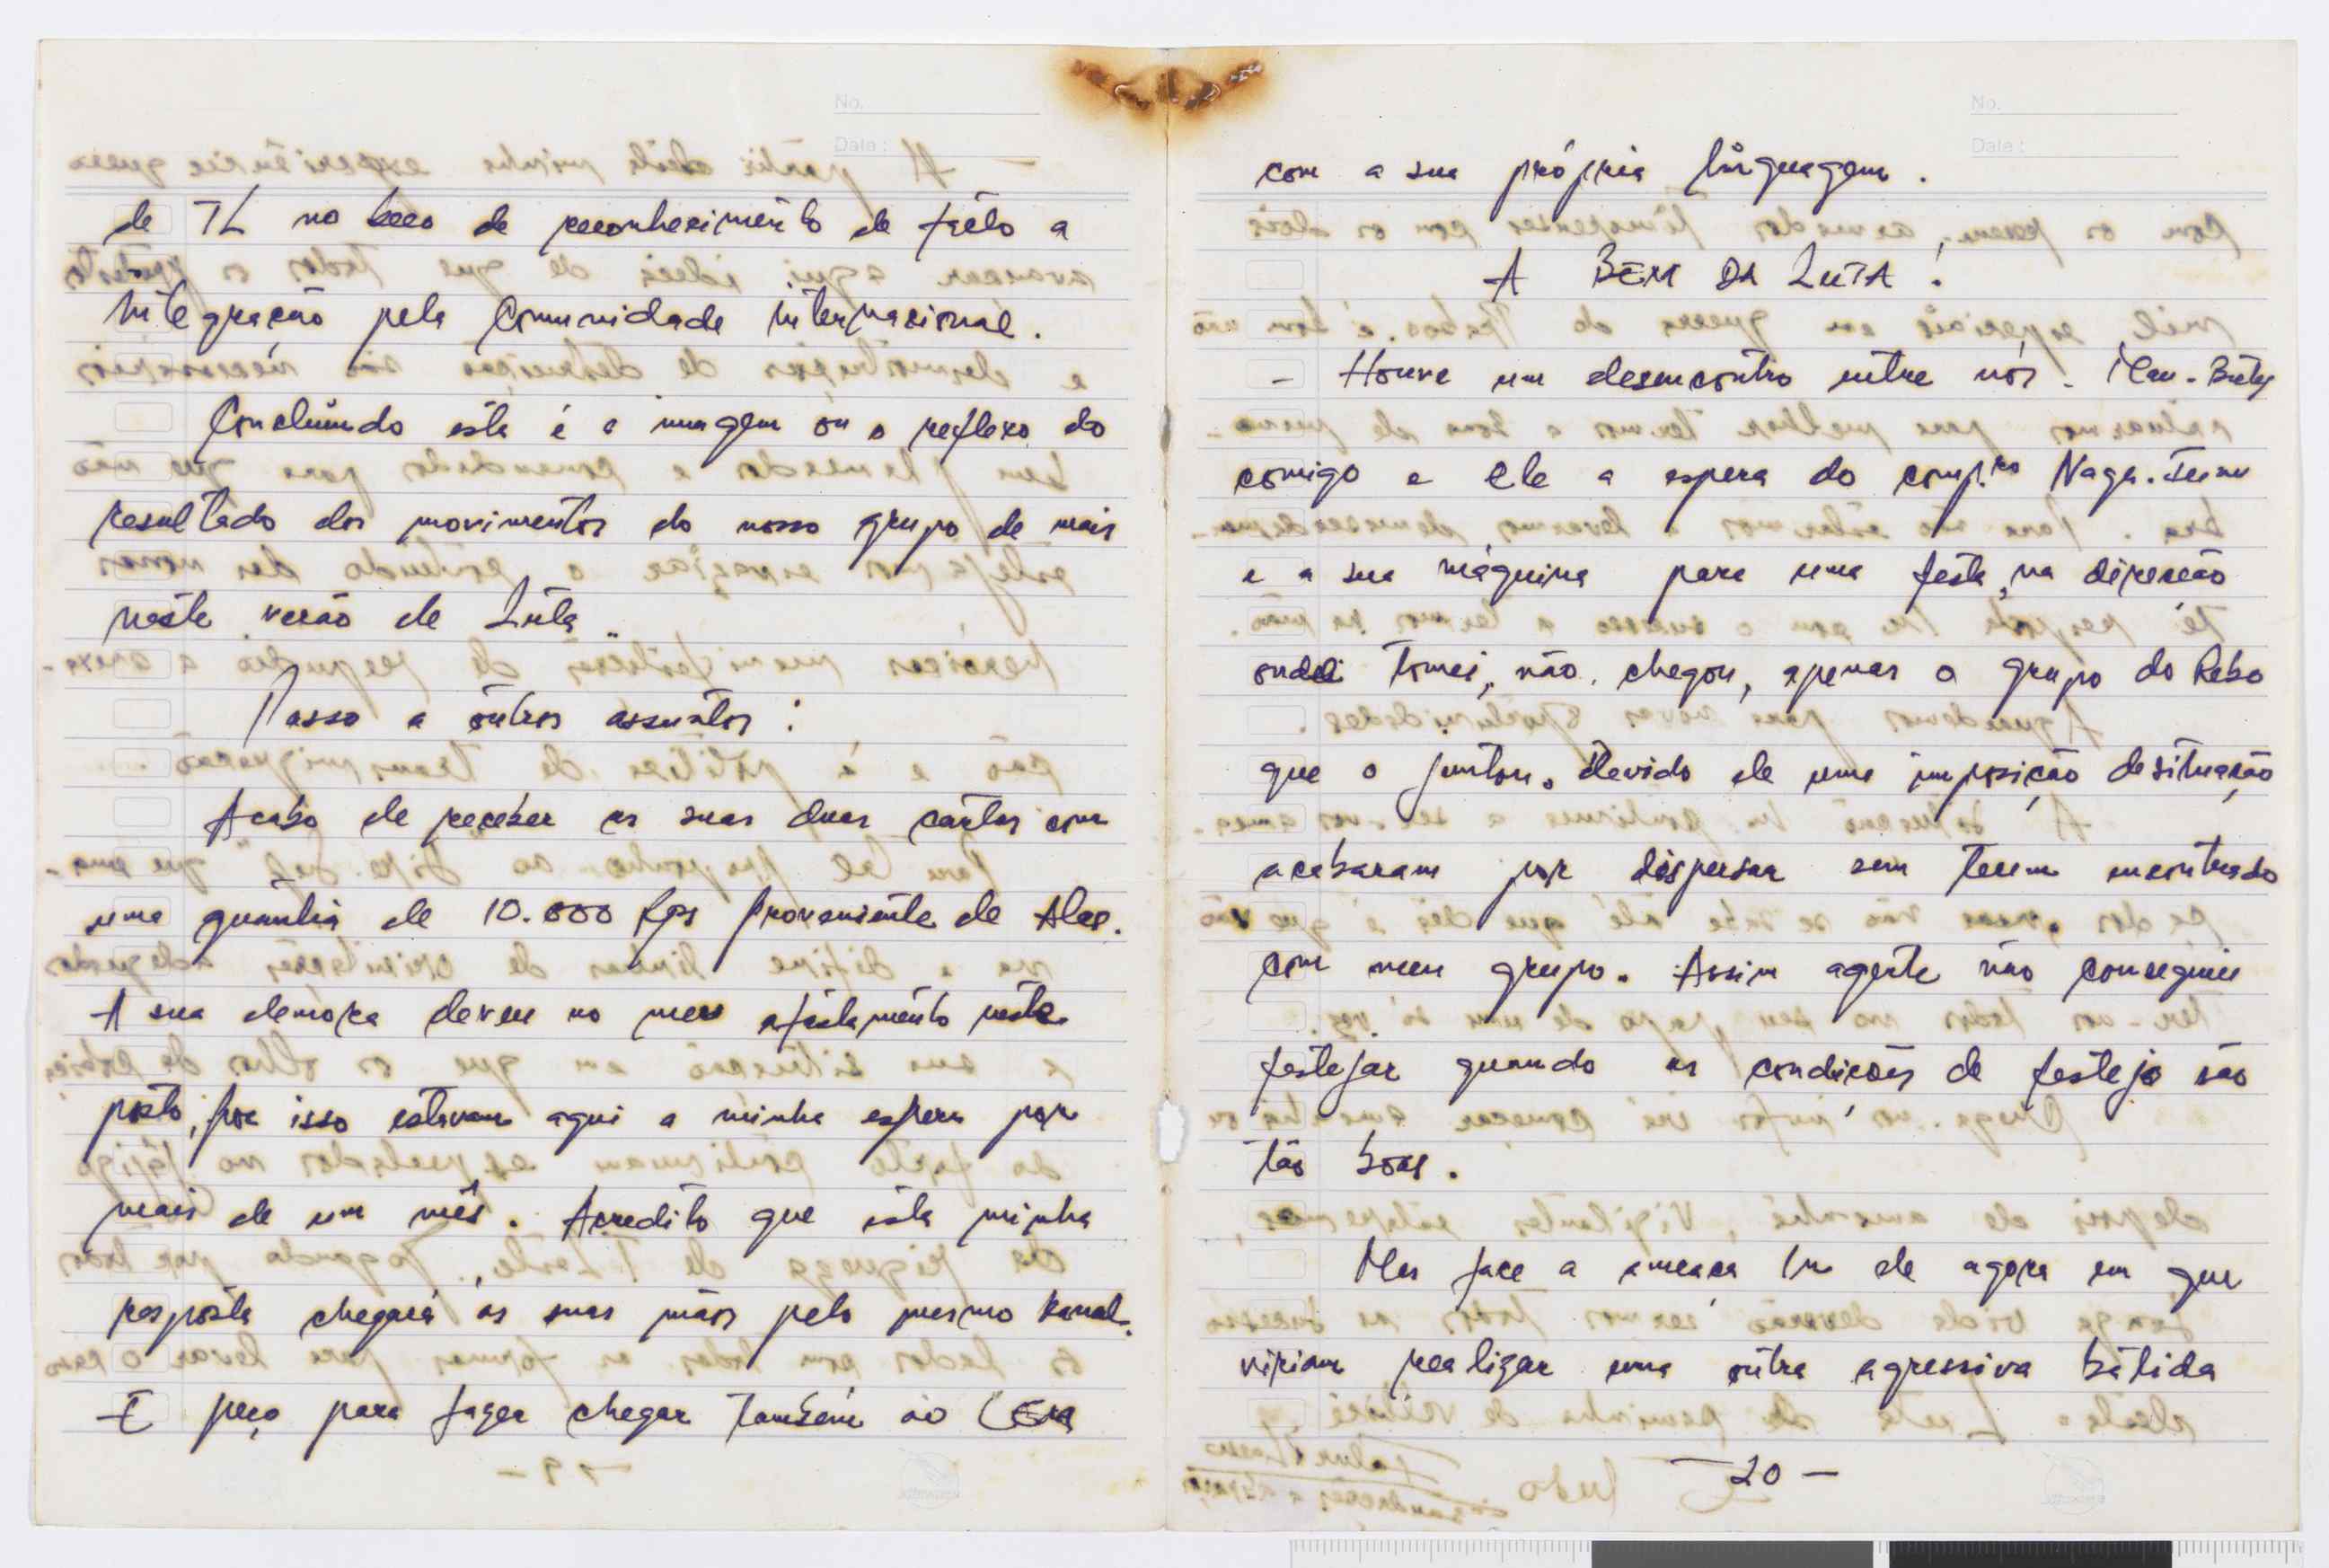 No.
Date:
de TL no beco de reconhecimento de facto a
integração pela Comunidade internacional.
Concluindo esta é a imagem ou o reflexo do
resultado dos movimentos do nosso grupo de mais
neste verão de Luta..
Passo a outros assuntos:
Acabo de receber as suas duas cartas com
uma quantia de 10.000 Rps proveniente de Alex.
A sua demora deveu no meu afastamento neste
posto, por isso estavam aqui a minha espera por
mais de um mês. Acredito que esta minha
resposta chegará as suas mãos pelo mesmo kanal.
E peço para fazer chegar também ao
No.
Date:
com a sua própria linguagem.
A BEM DA LUTA!
- Houve um desencontro entre nós. Mau-Buty
comigo e ele a espera do comp.ro Naga.
e a sua máquina para uma festa, na direcção
onde tomei, não chegou, apenas o grupo do Rebo
que o juntou. Devido de uma imposição de situação,
acabaram por dispersar sem terem encontrado
com meu grupo. Assim agente não conseguiu
festejar quando as condições de festejo são
tão boas.
Mas face a ameaça In de agora em que
viriam realizar uma outra agressiva bátida
- 20 -